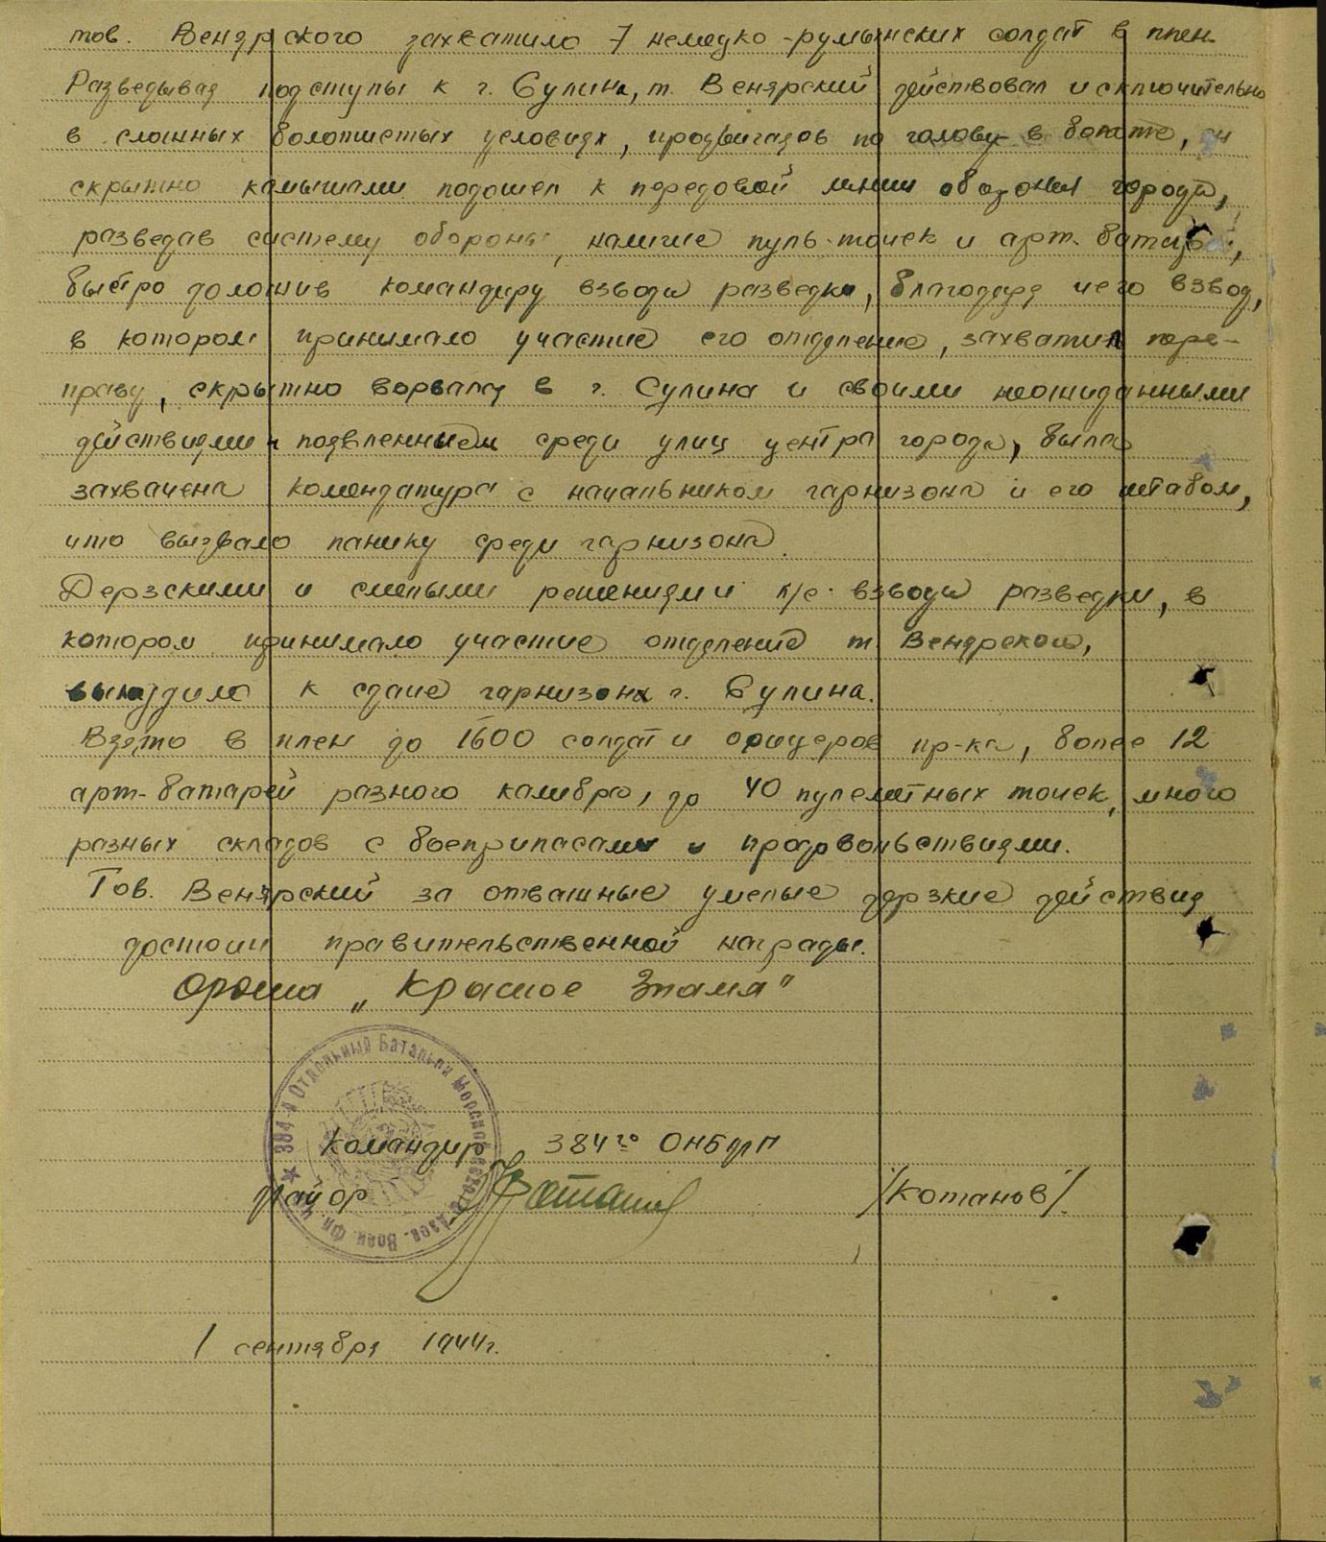 тов. Венярского захватило 7 немецко-румынских солдат в плен.
Разведывая подступы к г. Сулина, т. Венярский действовал исключительно
в сложных болотистых условиях, продвигаясь по голову в болоте, и
скрытно камышами подошел к передовой линии обороны города,
разведав систему обороны, наличие пуль-точек и арт. батарей,
быстро доложив командиру взвода разведки, благодаря чего взвод,
в котором принимало участие его отделение, захватил пере-
праву, скрытно ворвался в г. Сулина и своими неожиданными
действиями и появлением среди улиц центра города, была
захвачена комендатура с начальником гарнизона и его штабом,
что вызвало панику среди гарнизона.
Дерзскими и смелыми решениями л/с взвода разведки, в
котором принимало участие отделение т. Венярского,
вынудило к сдаче гарнизона г. Сулина.
Взято в плен до 1600 солдат и офицеров пр-ка, более 12
арт-батарей разного калибра, до 40 пулеметных точек, много
разных складов с боеприпасами и продовольствиями.
Тов. Венярский за отважные умелые дерзкие действия
достоин правительственной награды.
Ордена „Красное Знамя"
384-й Отдельный Батальон Морской
Азов. Воен. Фл.
Командир 384го ОНБМП
майор Котанов /Котанов/.
1 сентября 1944г.